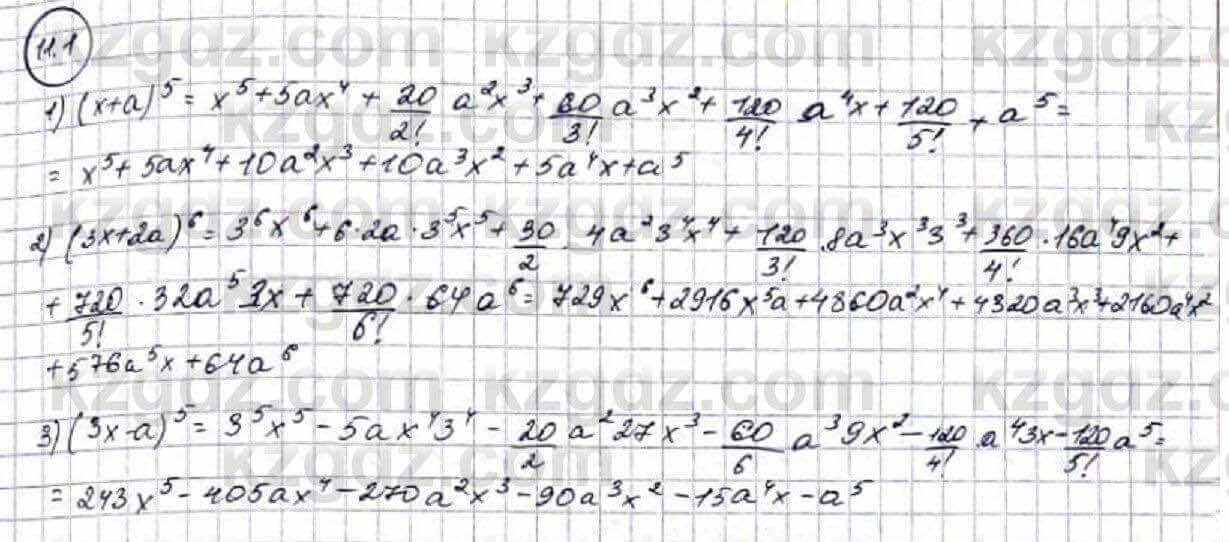 11.1
1) (x+a)^5 = x^5 + 5ax^4 + 20/2! a^2x^3 + 60/3! a^3x^2 + 120/4! a^4x + 120/5! + a^5 =
= x^5 + 5ax^4 + 10a^2x^3 + 10a^3x^2 + 5a^4x + a^5
2) (3x+2a)^6 = 3^6x^6 + 6·2a·3^5x^5 + 30/2 · 4a^2 3^4x^4 + 120/3! · 8a^3x^3 3^3 + 360/4! · 16a^4 9x^2 +
+ 720/5! · 32a^5 3x + 720/6! · 64a^6 = 729x^6 + 2916x^5a + 4860a^2x^4 + 4320a^3x^3 + 2160a^4x^2
+ 576a^5x + 64a^6
3) (3x-a)^5 = 3^5x^5 - 5ax^4 3^4 - 20/2 a^2 27x^3 - 60/6 a^3 9x^2 - 120/4! a^4 3x - 120/5! a^5 =
= 243x^5 - 405ax^4 - 270a^2x^3 - 90a^3x^2 - 15a^4x - a^5
kzgdz.com